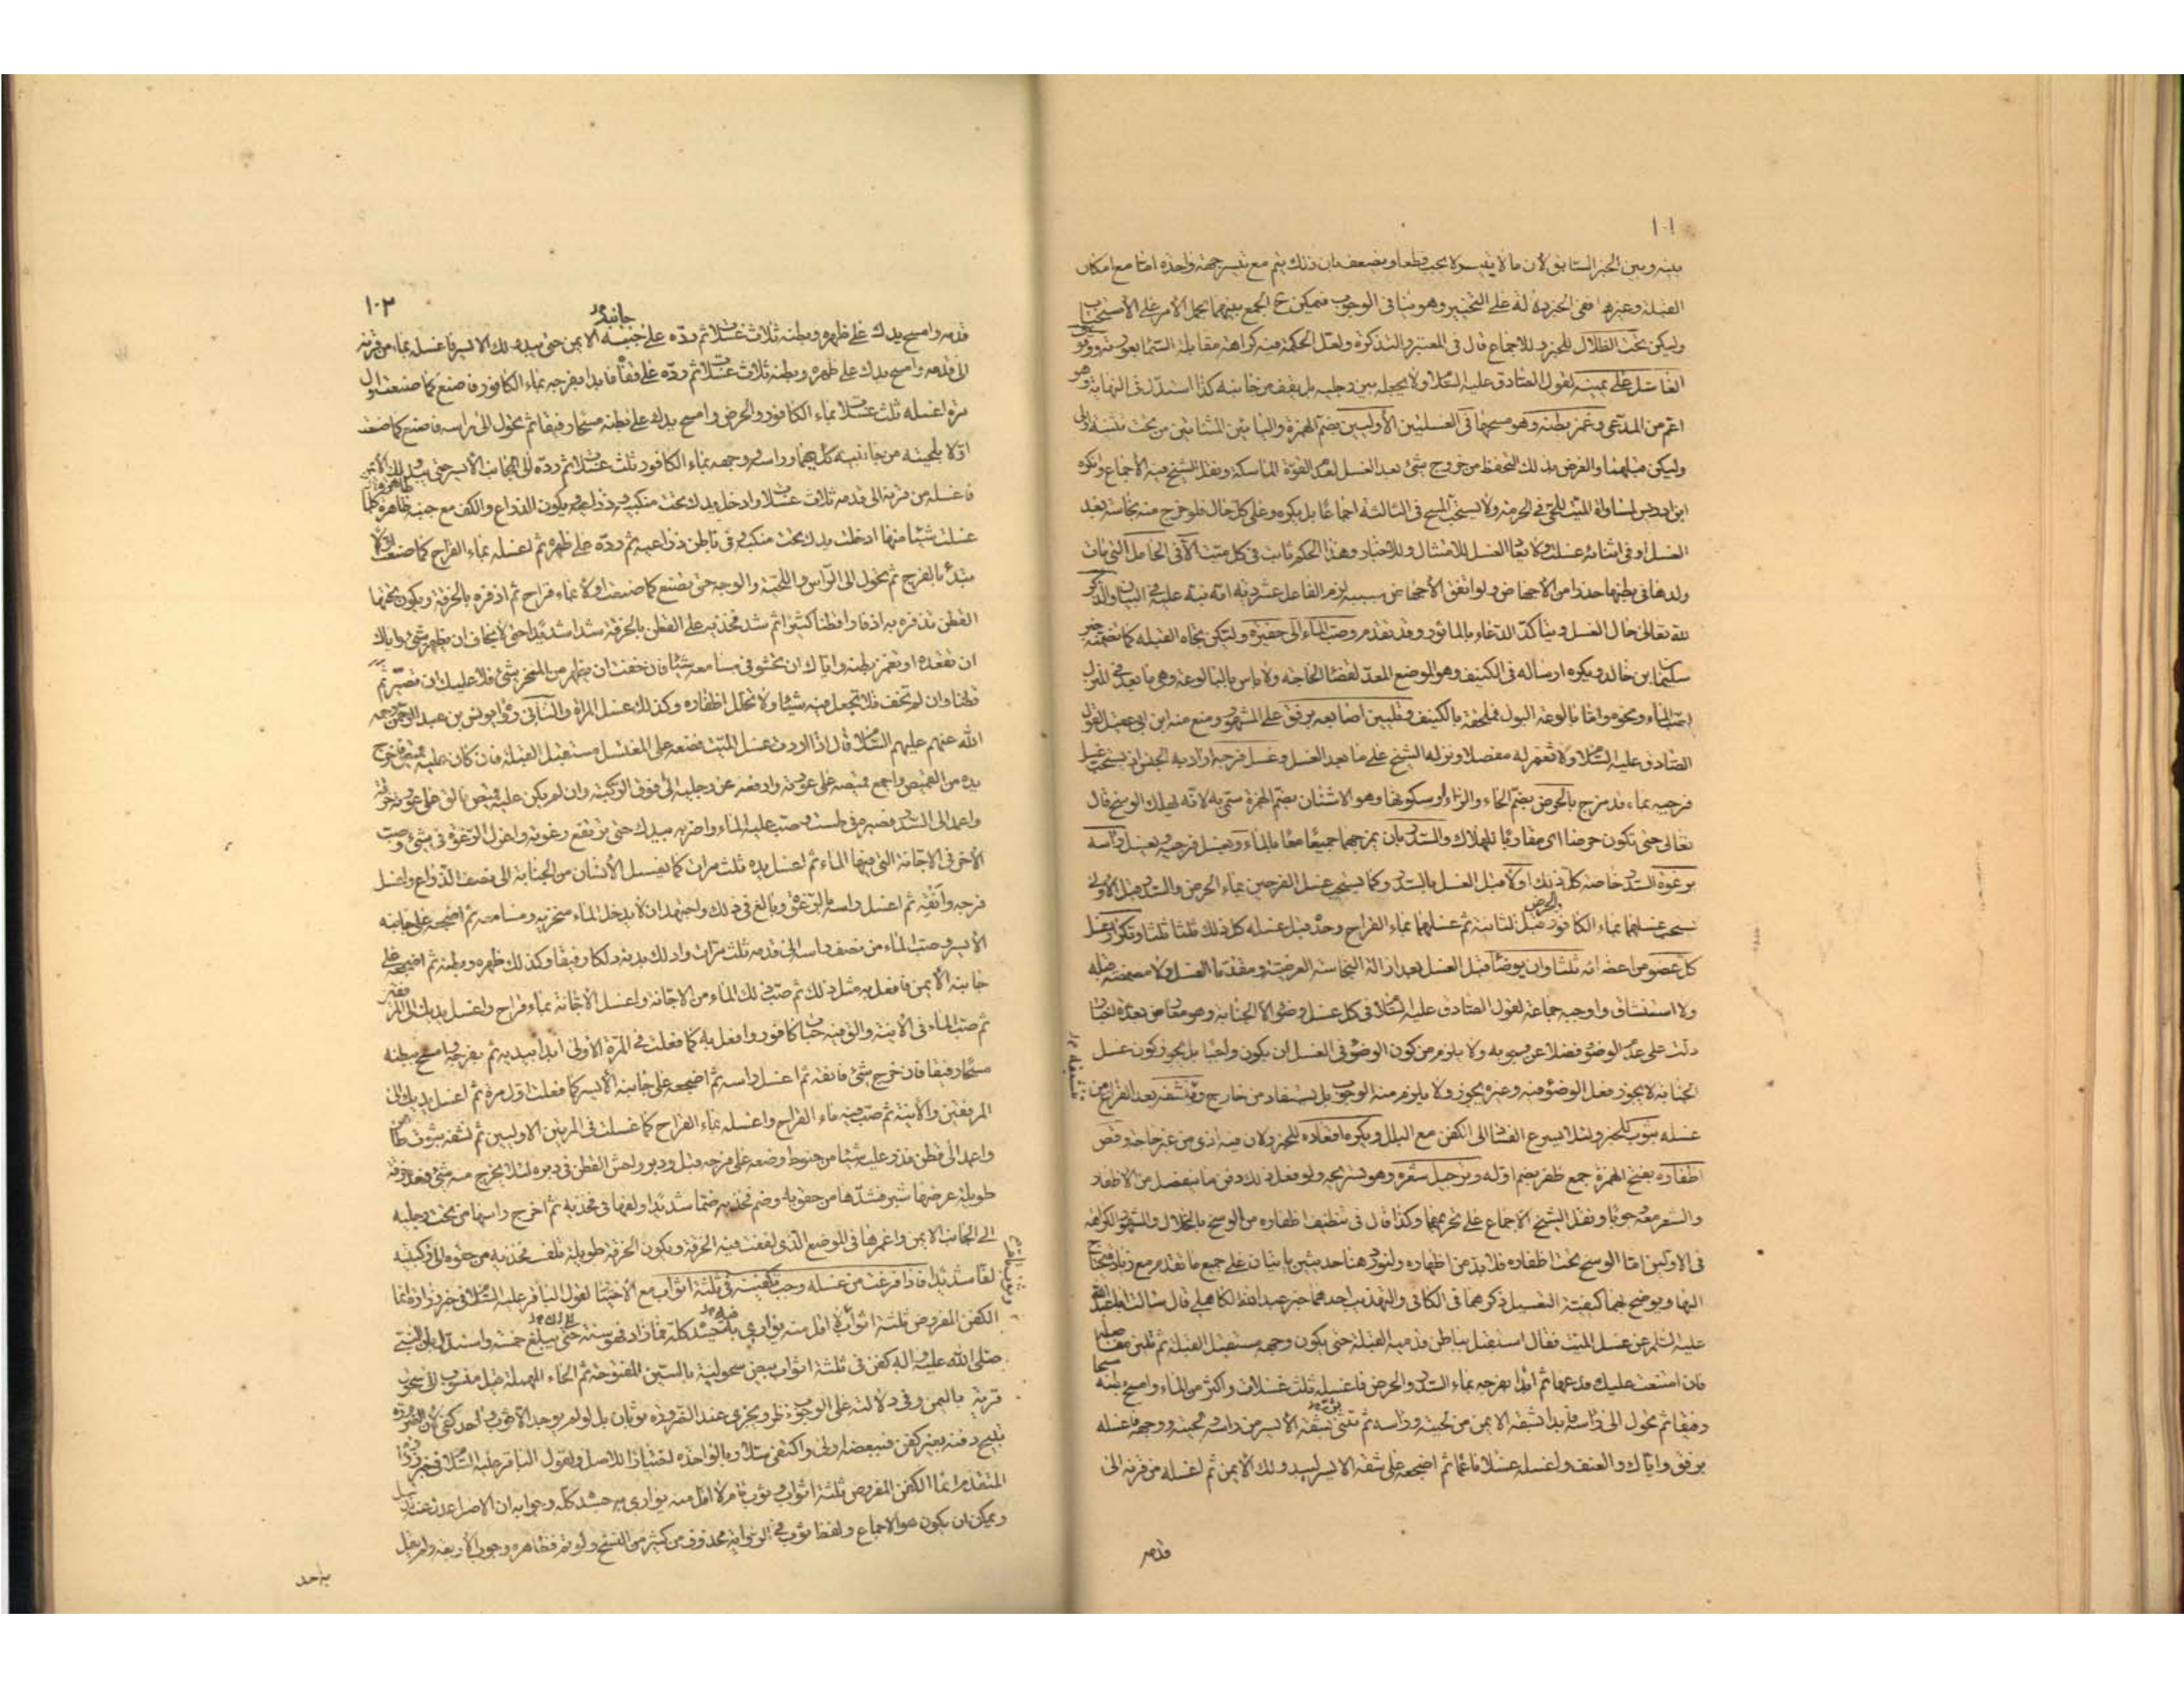 ١٠١
بينه وبين الخبر السابق لان ما لا يتيسر لا يجب قطعا ويضعف بان ذلك يتم مع تيسر جهة واحدة امّا مع امكان
القبلة وغيرها ففي الخبر دلالة على التخيير وهو مناف الوجوب فيمكن ح الجمع بينهما بحمل الأمر على الاستحباب
وليكن تحت الظلال للخبر وللاجماع قال في المعتبر والتذكرة ولعل الحكمة فيه كراهة مقابلة السماء بعورته ووقوف
الغاسل على يمينه لقول الصادق عليه السلام ولا يجعله بين رجليه بل يقف من جانبه كذا استدل في النهاية وهو
اعم من المدعى وغمز بطنه وهو مسحها في الغسلتين الأوليين بضم الهمزة واليائين المثناتين من تحت تثنية اولى
وليكن قبلهما والغرض بذلك التحفظ من خروج شئ بعد الغسل لعدم القوة الماسكة ونقل الشيخ فيه الأجماع وانكره
ابن ادريس لمساواة الميت للحي في الحرمة ولا يستحب المسح في الثالثة اجماعا بل يكره وعلى كل حال فلو خرج منه نجاسة بعد
الغسل او في اثنائه غسلت ولا يعاد الغسل للامتثال وللأخبار وهذا الحكم ثابت في كل ميت الا في الحامل التي مات
ولدها في بطنها حذرا من الأجهاض ولو اتفق الأجهاض بسببه لزم الفاعل عشر دية امه نبه عليه في البيان والذكر
لله تعالى حال الغسل ويتأكد الدعاء بالمأثور وقد تقدم وصب الماء الى حفيرة ولتكن تجاه القبلة كما تضمنه خبر
سليمان ابن خالد ويكره ارساله في الكنيف وهو الموضع المعد لقضاء الحاجة ولا باس بالبالوعة وهي ما يعد في المنزل
لصب الماء ونحوه وامّا بالوعة البول فملحقة بالكنيف وتليين اصابعه برفق على المشهور ومنع منه ابن ابي عقيل لقول
الصادق عليه السلام ولا تغمز له مفصلا ونزله الشيخ على ما بعد الغسل وغسل فرجه اراد به الجنس اذ يستحب غسل
فرجيه بماء قد مزج بالحرض بضم الحاء والراء او سكونها وهو الاشنان بضم الهمزة سمي به لانه يهلك الوسخ قال
تعالى حتى تكون حرضا اي مقاربا للهلاك والسدر بان يمزجهما جميعا معا بالماء ويغسل فرجيه ويغسل رأسه
برغوة السدر خاصة كل ذلك اولا قبل الغسل بالسدر وكما يستحب غسل الفرجين بماء الحرض والسدر قبل الأولى
يستحب غسلهما بماء الكافور والحرض قبل الثانية ثم غسلهما بماء القراح وحده قبل غسله كل ذلك ثلثا ثلثا وتكرار غسل
كل عضو من اعضائه ثلثا وان يوضأ قبل الغسل بعد ازالة النجاسة العرضية ومقدما الغسل ولا مضمضة قبله
ولا استنشاق واوجبه جماعة لقول الصادق عليه السلام في كل غسل وضوء الا الجنابة وهو معارض بعدة اخبار
دلت على عدم الوضوء فضلا عن وجوبه ولا يلزم من كون الوضوء في الغسل ان يكون واجبا بل يجوز كون غسل
الجنابة لا يجوز فعل الوضوء فيه وغيره يجوز ولا يلزم منه الوجوب بل يستفاد من خارج وتنشيفه بعد الفراغ من
تنشيفه
غسله بثوب للخبر ولئلا يسرع الفساد الى الكفن مع البلل ويكره اقعاده للخبر ولان فيه اذى من غير حاجة وقص
اظفاره بفتح الهمزة جمع ظفر بضم اوله وترجيل شعره وهو تسريحه ولو فعل ذلك دفن ما ينفصل من الاظفار
والشعر معه وجوبا ونقل الشيخ الاجماع على تحريمهما وكذا قال في تنظيف اظفاره من الوسخ بالخلال والمشهور الكراهة
في الاولين امّا الوسخ تحت اظفاره فلا بد من اظهاره ولنورد هنا حديثين ياتيان على جميع ما تقدم مع زيادة يحتاج
اليها ويوضح بهما كيفية التغسيل ذكرهما في الكافي والتهذيب احدهما خبر عبد الله الكاهلي قال سالت ابا عبد الله
عليه السلم عن غسل الميت فقال استقبل بباطن قدميه القبلة حتى يكون وجهه مستقبل القبلة ثم تلين مفاصله
فان امتنعت عليك فدعها ثم ابدا بفرجه بماء السدر والحرض فاغسله ثلث غسلات واكثر من الماء وامسح بطنه مسحا
رفيقا ثم تحول الى رأسه فابدا بشقه الايمن من لحيته وراسه ثم تثني بشقه الأيسر من راسه ولحيته ووجهه فاغسله
برفق واياك والعنف واغسله غسلا ناعما ثم اضجعه على شقه الايسر ليبدو لك الأيمن ثم اغسله من قرنه الى
قدمه
١٠٢
قدمه وامسح يدك على ظهره وبطنه ثلاث غسلات ثم رده على جنبه الايمن حتى يبدو لك الايسر فاغسله بماء من قرنه
جانبه
الى قدمه وامسح يدك على ظهره وبطنه ثلاث غسلات ثم رده على قفاه فابدا بفرجه بماء الكافور فاصنع كما صنعت اول
مرة اغسله ثلث غسلات بماء الكافور والحرض وامسح يدك على بطنه مسحا رفيقا ثم تحول الى راسه فاصنع كما صنعت
اولا بلحيته من جانبيه كليهما وراسه ووجهه بماء الكافور ثلث غسلات ثم رده الى الجانب الأيسر حتى يبدو لك الأيمن
فاغسله من قرنه الى قدمه ثلاث غسلات وادخل يدك تحت منكبيه وذراعيه ويكون الذراع والكف مع جنبه ظاهرة كلما
غسلت شيئا منها ادخلت يدك تحت منكبيه وفي باطن ذراعيه ثم رده على ظهره ثم اغسله بماء القراح كما صنعت اولا
تبتدئ بالفرج ثم تحول الى الرأس واللحية والوجه حتى تصنع كما صنعت اولا بماء قراح ثم اذفره بالخرقة ويكون تحتها
القطن تذفره به اذفارا قطنا كثيرا ثم تشد فخذيه على القطن بالخرقة شدا شديدا حتى لا يخاف ان يظهر شئ واياك
ان تقعده او تغمز بطنه واياك ان تحشو في مسامعه شيئا فان خفت ان يظهر من المنخر شئ فلا عليك ان تصير ثم
قطنا وان لم تخف فلا تجعل فيه شيئا ولا تخلل اظفاره وكذلك غسل المرأة والثاني رواه يونس بن عبد الرحمن رحمه
الله عنهم عليهم السلام قال اذا اردت غسل الميت فضعه على المغتسل مستقبل القبلة فان كان عليه قميص فاخرج
يده من القميص واجمع قميصه على عورته وارفعه عن رجليه الى فوق الركبة وان لم يكن عليه قميص فالق على عورته خرقة
واعمد الى السدر فصيره في طست وصب عليه الماء واضربه بيدك حتى يرتفع رغوته واعزل الرغوة في شئ وصب
الآخر في الاجانة التي فيها الماء ثم اغسل يده ثلث مرات كما يغسل الأنسان من الجنابة الى نصف الذراع واغسل
فرجه وانقه ثم اغسل راسه بالرغوة وبالغ في ذلك واجتهد ان لا يدخل الماء منخريه ومسامعه ثم اضجعه على جانبه
الأيسر وصب الماء من نصف راسه الى قدمه ثلث مرات وادلك بدنه دلكا رفيقا وكذلك ظهره وبطنه ثم اضجعه على
جانبه الأيمن فافعل به مثل ذلك ثم صب ذلك الماء من الاجانة واغسل الأجانة بماء قراح واغسل يديك الى المرفقين
ثم صب الماء في الآنية والق فيه حبات كافور وافعل به كما فعلت في المرة الأولى ابدا بيديه ثم بفرجه وامسح بطنه
مسحا رفيقا فان خرج شئ فانقه ثم اغسل راسه ثم اضجعه على جانبه الأيسر كما فعلت اول مرة ثم اغسل يديك الى
المرفقين والآنية ثم صب فيه ماء القراح واغسله بماء القراح كما غسلت في المرتين الاوليين ثم نشفه بثوب طاهر
واعمد الى قطن فذر عليه شيئا من حنوط وضعه على فرجه قبل ودبر واحش القطن في دبره لئلا يخرج منه شئ وخذ خرقة
طويلة عرضها شبر فشدها من حقويه وضم فخذيه ضما شديدا ولفها في فخذيه ثم اخرج راسها من تحت رجليه
الى الجانب الايمن واغمزها في الموضع الذي لففت فيه الخرقة ويكون الخرقة طويلة تلف فخذيه من حقويه الى ركبتيه
لفا شديدا فاذا فرغت من غسله وجب تكفينه في ثلثة اثواب مع الأختيار لقول الباقر عليه السلام في خبر زرارة انما
الكفن المفروض ثلثة اثواب لا اقل منه يواري به جسده كله فما زاد فهو سنة حتى يبلغ خمسة واستدل بان النبي
صلى الله عليه واله كفن في ثلثة اثواب بيض سحولية بالسين المفتوحة ثم الحاء المهملة قيل منسوب الى سحول
قرية باليمن وفي دلالته على الوجوب نظر ويجزي عند الضرورة ثوبان بل لو لم يوجد الا ثوب واحد كفى لأن الضرورة
تبيح دفنه بغير كفن فببعضه اولى واكتفى سلار بالواحدة اختيارا للاصل ولقول الباقر عليه السلام في خبر زرارة
المتقدم انما الكفن المفروض ثلثة اثواب وثوب تام لا اقل منه يواري فيه جسده كله وجوابه ان الاصل
ويمكن ان يكون هو الاجماع ولفظ ثوب في الرواية محذوف من كثير من النسخ ولو تم فظاهره وجوب الأربعة ولم يقل
به احد